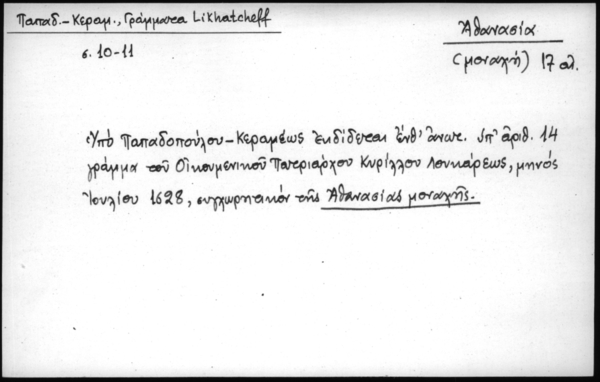 Παπαδ.-Κεραμ., Γράμματα Likhatcheff
Ἀθανασία
σ. 10-11
(μοναχή) 17 αἰ.
Ὑπό Παπαδοπούλου-Κεραμέως ἐκδίδεται ἔνθ' ἀνωτ. ὑπ' ἀριθ. 14
γράμμα τοῦ Οἰκουμενικοῦ Πατριάρχου Κυρίλλου Λουκάρεως, μηνός
Ἰουλίου 1628, συγχωρητικόν τῆς Ἀθανασίας μοναχῆς.